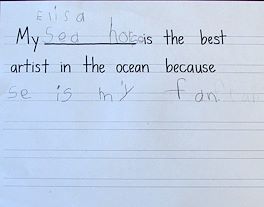 Elisa
My Sea horse is the best
artist in the ocean because
se is my fan